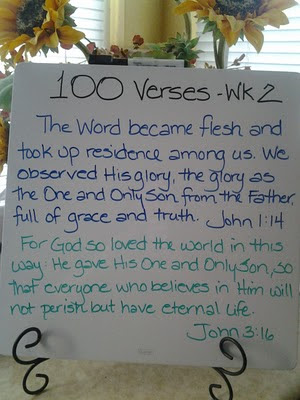 100 Verses - Wk 2
The Word became flesh and
took up residence among us. We
observed His glory, the glory as
the One and Only Son from the Father,
full of grace and truth. John 1:14
For God so loved the world in this
way: He gave His One and Only Son, so
that everyone who believes in Him will
not perish but have eternal life.
John 3:16